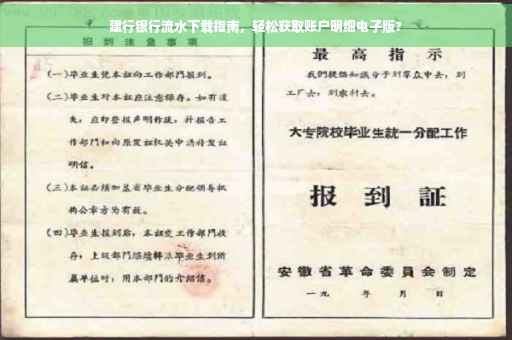 建行银行流水下载指南，轻松获取账户明细电子版？
报到注意事项
（一）毕业生凭本证向工作部门报到。
（二）毕业生对本证应注意保存。如有遗
失，应即登报声明作废，并报告工
作部门和向原发证机关申请补发证
明信。
（三）本证必须加盖省毕业生分配领导机
构公章方为有效。
（四）毕业生报到后，本证交工作部门收
存；上级部门继续转派毕业生到所
属单位时，用本部门的介绍信。
最高指示
我们提倡知识分子到群众中去，到
工厂去，到农村去。
大专院校毕业生統一分配工作
报到証
安徽省革命委員会制定
一九 年 月 日